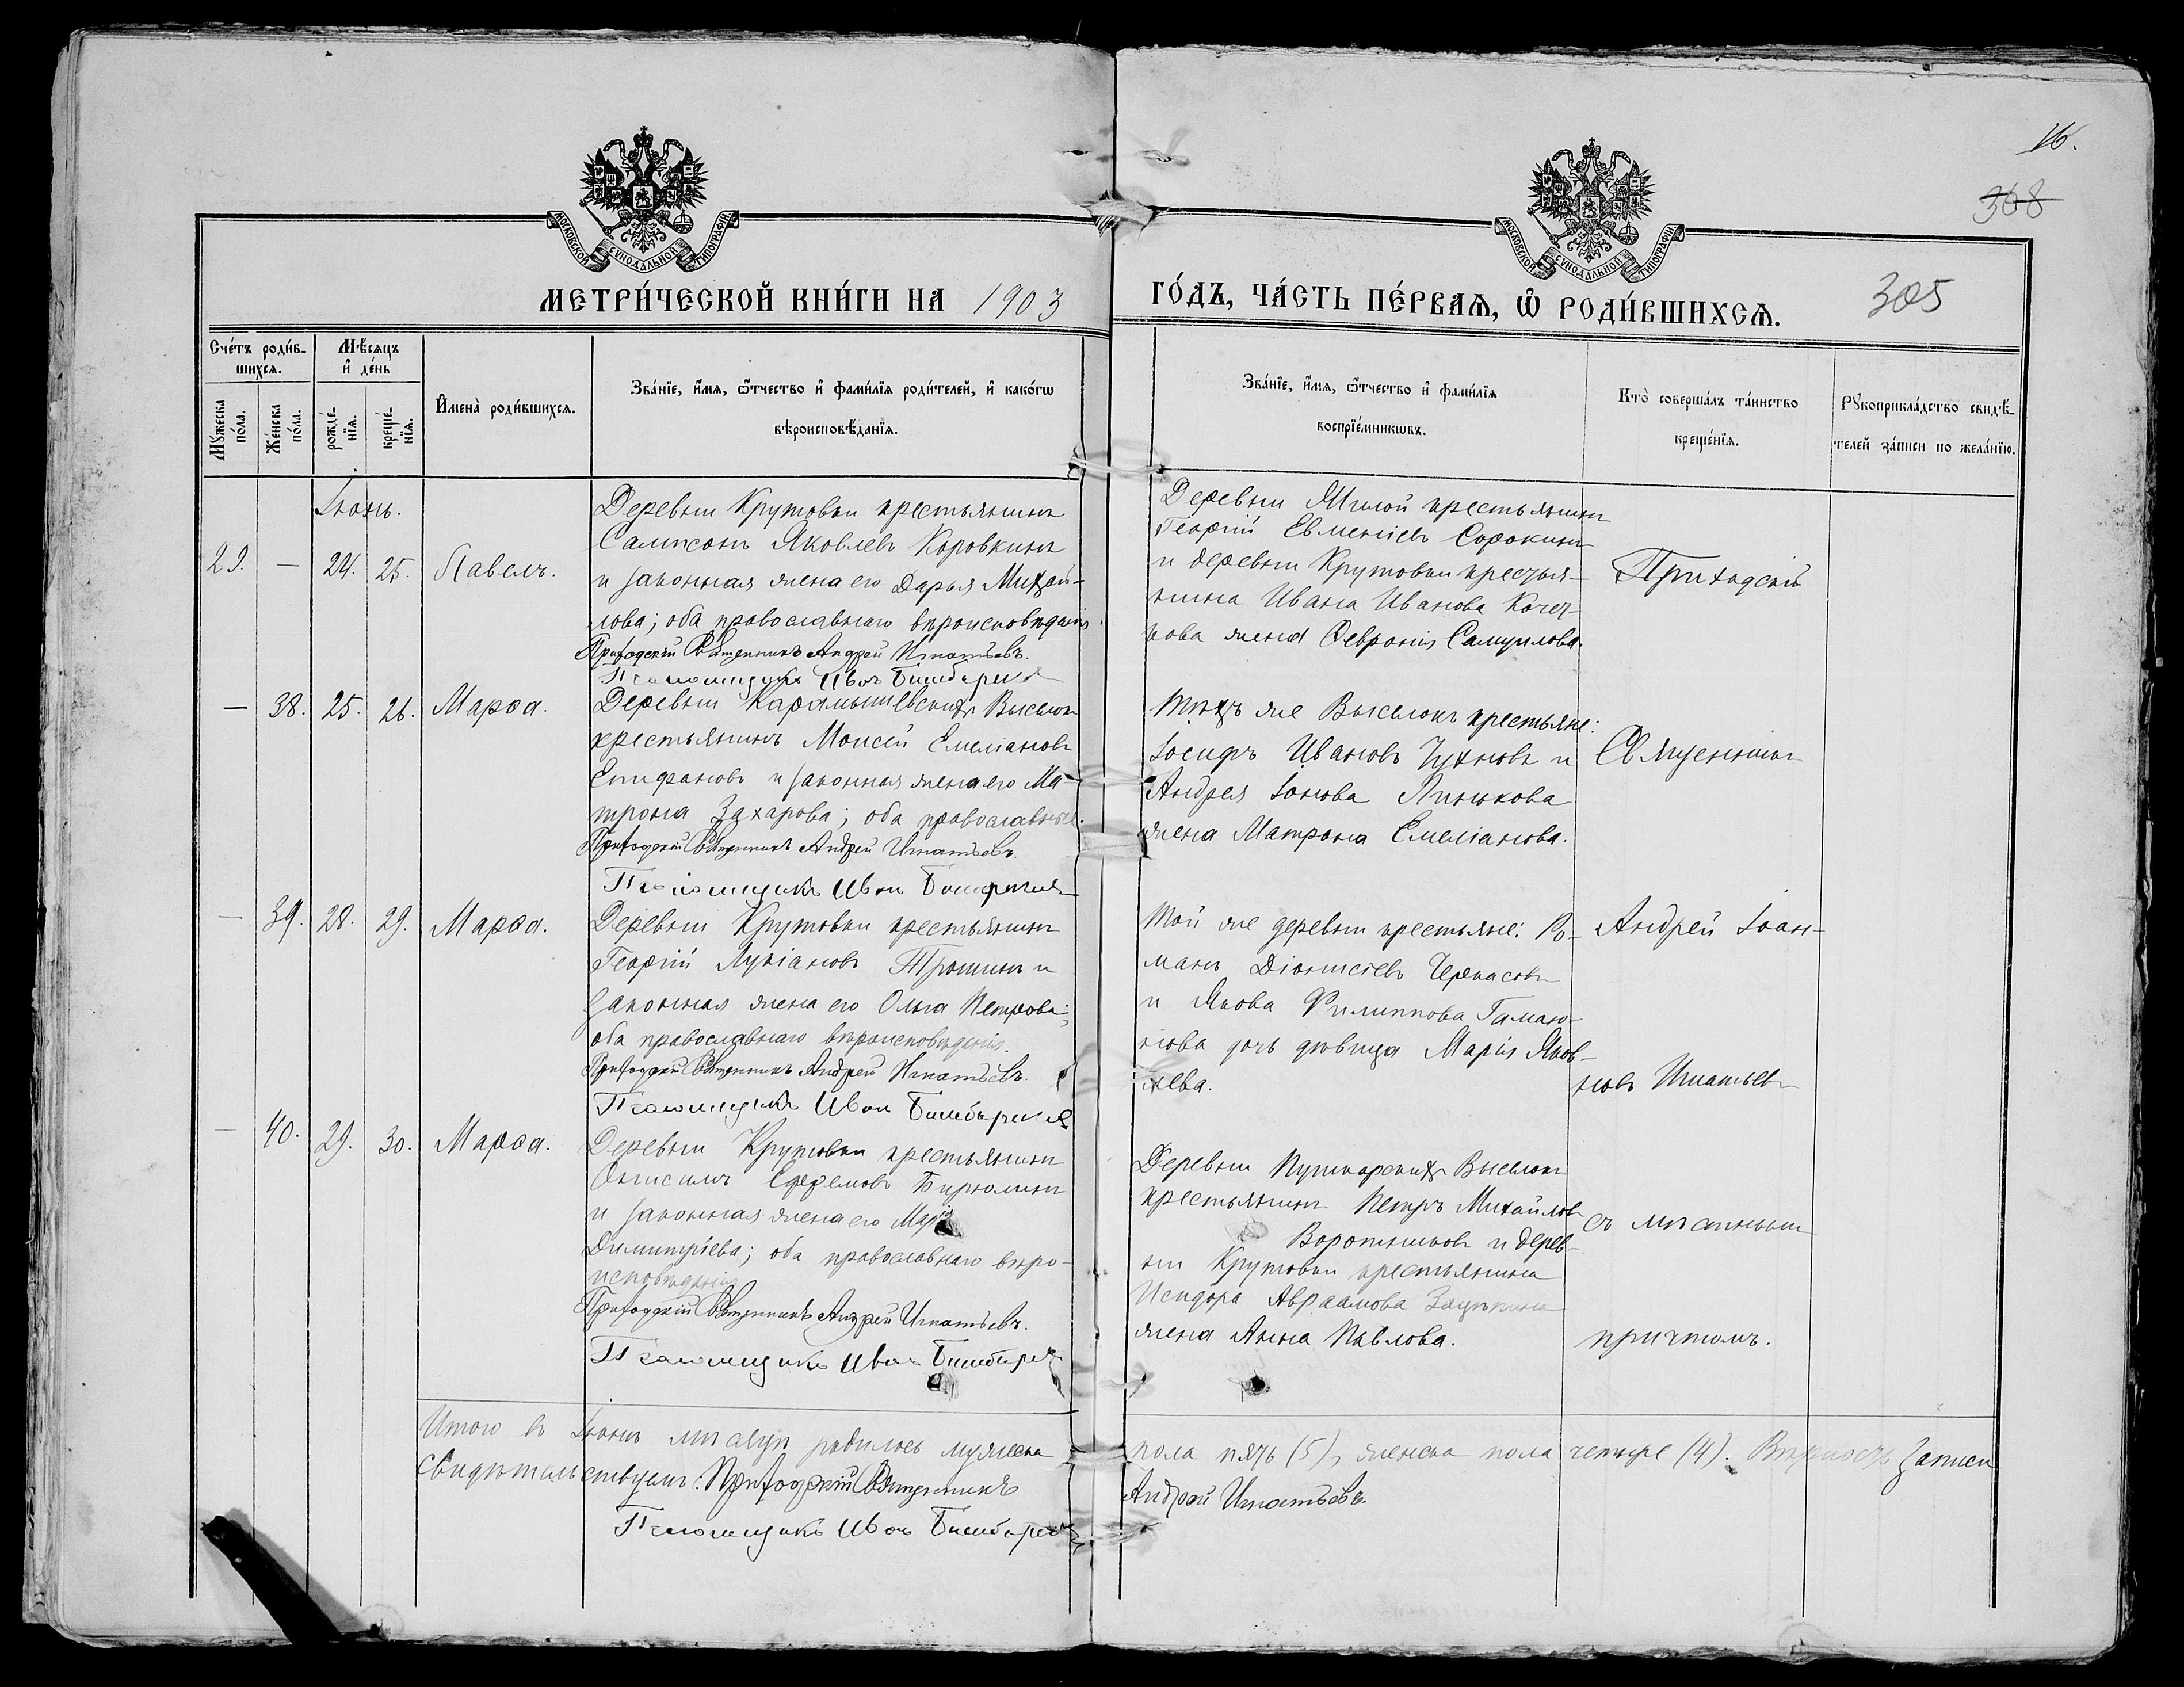 16.
308
305
МОСКОВСКОЙ СУНОДАЛЬНОЙ ТИПОГРАФІИ
МОСКОВСКОЙ СУНОДАЛЬНОЙ ТИПОГРАФІИ
МЕТРИ́ЧЕСКОЙ КНИ́ГИ НА 1903
ГО́ДЪ, ЧА́СТЬ ПЕ́РВАѦ, Ѽ РОДИ́ВШИХСѦ.
Сче́тъ роди́в-
шихсѧ.
Мꙋжеска по́ла.
Же́нска по́ла.
Мѣ́сѧцъ
и҆ де́нь
рожде́-
нїѧ.
креще́-
нїѧ.
И҆мена̀ роди́вшихсѧ.
Зва́нїе, и҆́мѧ, ѻ҆́тчество и҆ фами́лїѧ роди́телей, и҆ како́гѡ
вѣроисповѣ́данїѧ.
Зва́нїе, и҆́мѧ, ѻ҆́тчество и҆ фами́лїѧ
воспрїе́мникѡвъ.
Кто̀ соверша́лъ та́инство
креще́нїѧ.
Рꙋкоприкла́дство свидѣ́-
телей за́писи по жела́нїю.
Іюнь.
29. — 24. 25. Павелъ.
Деревни Крутовки крестьянинъ
Сампсонъ Яковлевъ Коровкинъ
и законная жена его Дарья Михай-
лова; оба православнаго вѣроисповѣданія.
Приходскій Священникъ Андрей Игнатьевъ.
Псаломщикъ Иванъ
Деревни крестьянинъ
Георгій Евменіевъ Сорокинъ
и деревни Крутовки крестья-
нина Ивана Иванова
жена Феѵронія Самуилова.
Приходскій
— 38. 25. 26. Марѳа.
Деревни Карамышевскихъ Выселокъ
крестьянинъ Моисей Емеліановъ
Епифановъ и законная жена его Ма-
трона Захарова; оба православные.
Приходскій Священникъ Андрей Игнатьевъ.
Псаломщикъ Иванъ
Тѣхъ же Выселокъ крестьяне:
Іосифъ Ивановъ Чухновъ и
Андрея Іонова Линькова
жена Матрона Емеліанова.
Священникъ
— 39. 28. 29. Марѳа.
Деревни Крутовки крестьянинъ
Георгій Лукіановъ Трошинъ и
законная жена его Ольга Петрова;
оба православнаго вѣроисповѣданія.
Приходскій Священникъ Андрей Игнатьевъ.
Псаломщикъ Иванъ
Той же деревни крестьяне: Ро-
манъ Діонисіевъ Черкасовъ
и Якова Филиппова Гамаю-
нова дочь дѣвица Марія Яков-
лева.
Андрей Іоан-
новъ Игнатьевъ
— 40. 29. 30. Марѳа.
Деревни Крутовки крестьянинъ
Онисимъ Ефремовъ Бирюлинъ
и законная жена его Марія
Димитріева; оба православнаго вѣро-
исповѣданія
Приходскій Священникъ Андрей Игнатьевъ.
Псаломщикъ Иванъ
Деревни Пушкарскихъ Выселокъ
крестьянинъ Петръ Михайловъ
Воротниковъ и дерев-
ни Крутовки крестьянина
Исидора Авраамова Зацепина
жена Анна Павлова.
съ мѣстнымъ
причтомъ.
Итого въ Іюнѣ мѣсяцѣ родилось мужеска пола пять (5), женска пола четыре (4). Вѣрность записи
свидѣтельствуемъ: Приходскій Священникъ Андрей Игнатьевъ.
Псаломщикъ Иванъ